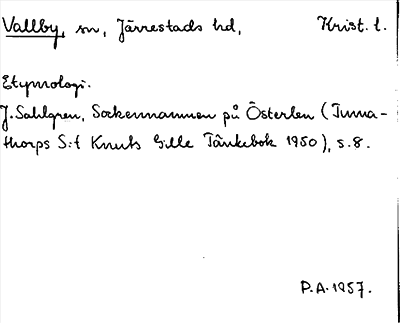 Vallby, sn, Järrestads hd, Krist. l.
Etymologi.
J. Sahlgren, Sockennamnen på Österlen (Tuma-
thorps S:t Knuts Gille Tänkebok 1950), s. 8.
P.A. 1957.